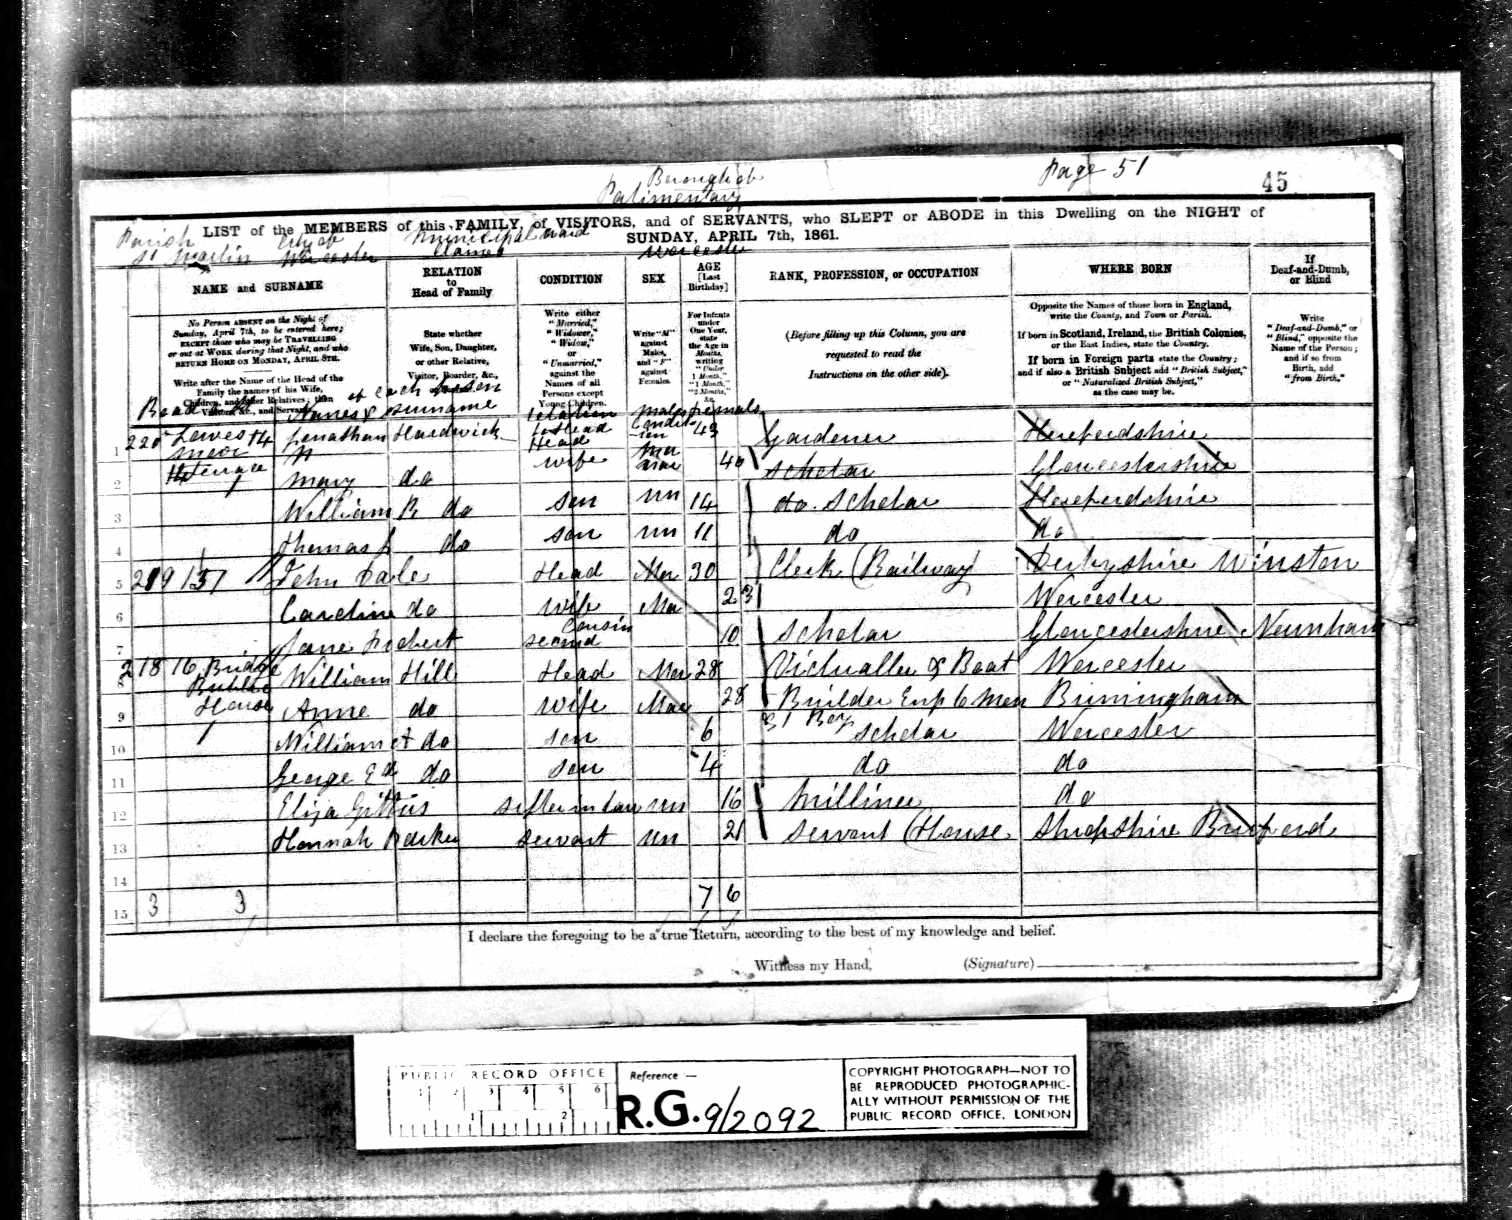 Borough of
Palimentary
Page 51
45
LIST of the MEMBERS of this FAMILY, of VISITORS, and of SERVANTS, who SLEPT or ABODE in this Dwelling on the NIGHT of
SUNDAY, APRIL 7th, 1861.
Parish City of Municipal ward
St Martin Worcester Worcester
NAME and SURNAME
RELATION
to
Head of Family
CONDITION
SEX
AGE
[Last
Birthday]
RANK, PROFESSION, or OCCUPATION
WHERE BORN
If
Deaf-and-Dumb,
or Blind
No Person ABSENT on the Night of
Sunday, April 7th, to be entered here;
EXCEPT those who may be TRAVELLING
or out at WORK during that Night, and who
RETURN HOME ON MONDAY, APRIL 8TH.
Write after the Name of the Head of the
Family the names of his Wife,
Children, and other Relatives; then
Visitors, &c., and Servants.
State whether
Wife, Son, Daughter,
or other Relative,
Visitor, Boarder, &c.,
Write either
"Married,"
"Widower,"
"Widow,"
or
"Unmarried,"
against the
Names of all
Persons except
Young Children.
Write "M"
against
Males,
and "F"
against
Females.
For Infants
under
One Year,
state
the Age in
Months,
writing
"Under
1 Month,"
"1 Month,"
"2 Months,"
&c.
(Before filling up this Column, you are
requested to read the
Instructions on the other side).
Opposite the Names of those born in England,
write the County, and Town or Parish.
If born in Scotland, Ireland, the British Colonies,
or the East Indies, state the Country.
If born in Foreign parts state the Country;
and if also a British Subject add "British Subject,"
or "Naturalized British Subject,"
as the case may be.
Write
"Deaf-and-Dumb," or
"Blind," opposite the
Name of the Person;
and if so from
Birth, add
"from Birth."
of each
Names & surname relation males femals
to Head Condit
ion
1 220 14 Jonathan Hardwick Head Mar 43 Gardener Herefordshire
2 Terrace Mary do wife Mar 40 scholar Gloucestershire
3 William B do son un 14 do. scholar Herefordshire
4 Thomas J do son un 11 do do
5 219 15 John Dale Head Mar 30 Clerk (Railway) Derbyshire Winston
6 Caroline do wife Mar 23 Worcester
7 Jane second cousin 10 scholar Gloucestershire Newnham
8 218 16 Bridge William Hill Head Mar 28 Victualler & Boat Worcester
9 Public House Anne do wife Mar 28 Builder Emp 6 men Birmingham
& 1 Boy
10 William do son 6 scholar Worcester
11 George Ed do son 4 do do
12 Eliza Gittus sister in law un 16 Milliner do
13 Hannah Barker servant un 21 servant (House Shropshire Burford
14
15 3 3 7 6
I declare the foregoing to be a true Return, according to the best of my knowledge and belief.
Witness my Hand, (Signature)
PUBLIC RECORD OFFICE
1 2 3 4 5 6
1 2
Reference —
R.G. 9/2092
COPYRIGHT PHOTOGRAPH—NOT TO
BE REPRODUCED PHOTOGRAPHIC-
ALLY WITHOUT PERMISSION OF THE
PUBLIC RECORD OFFICE, LONDON